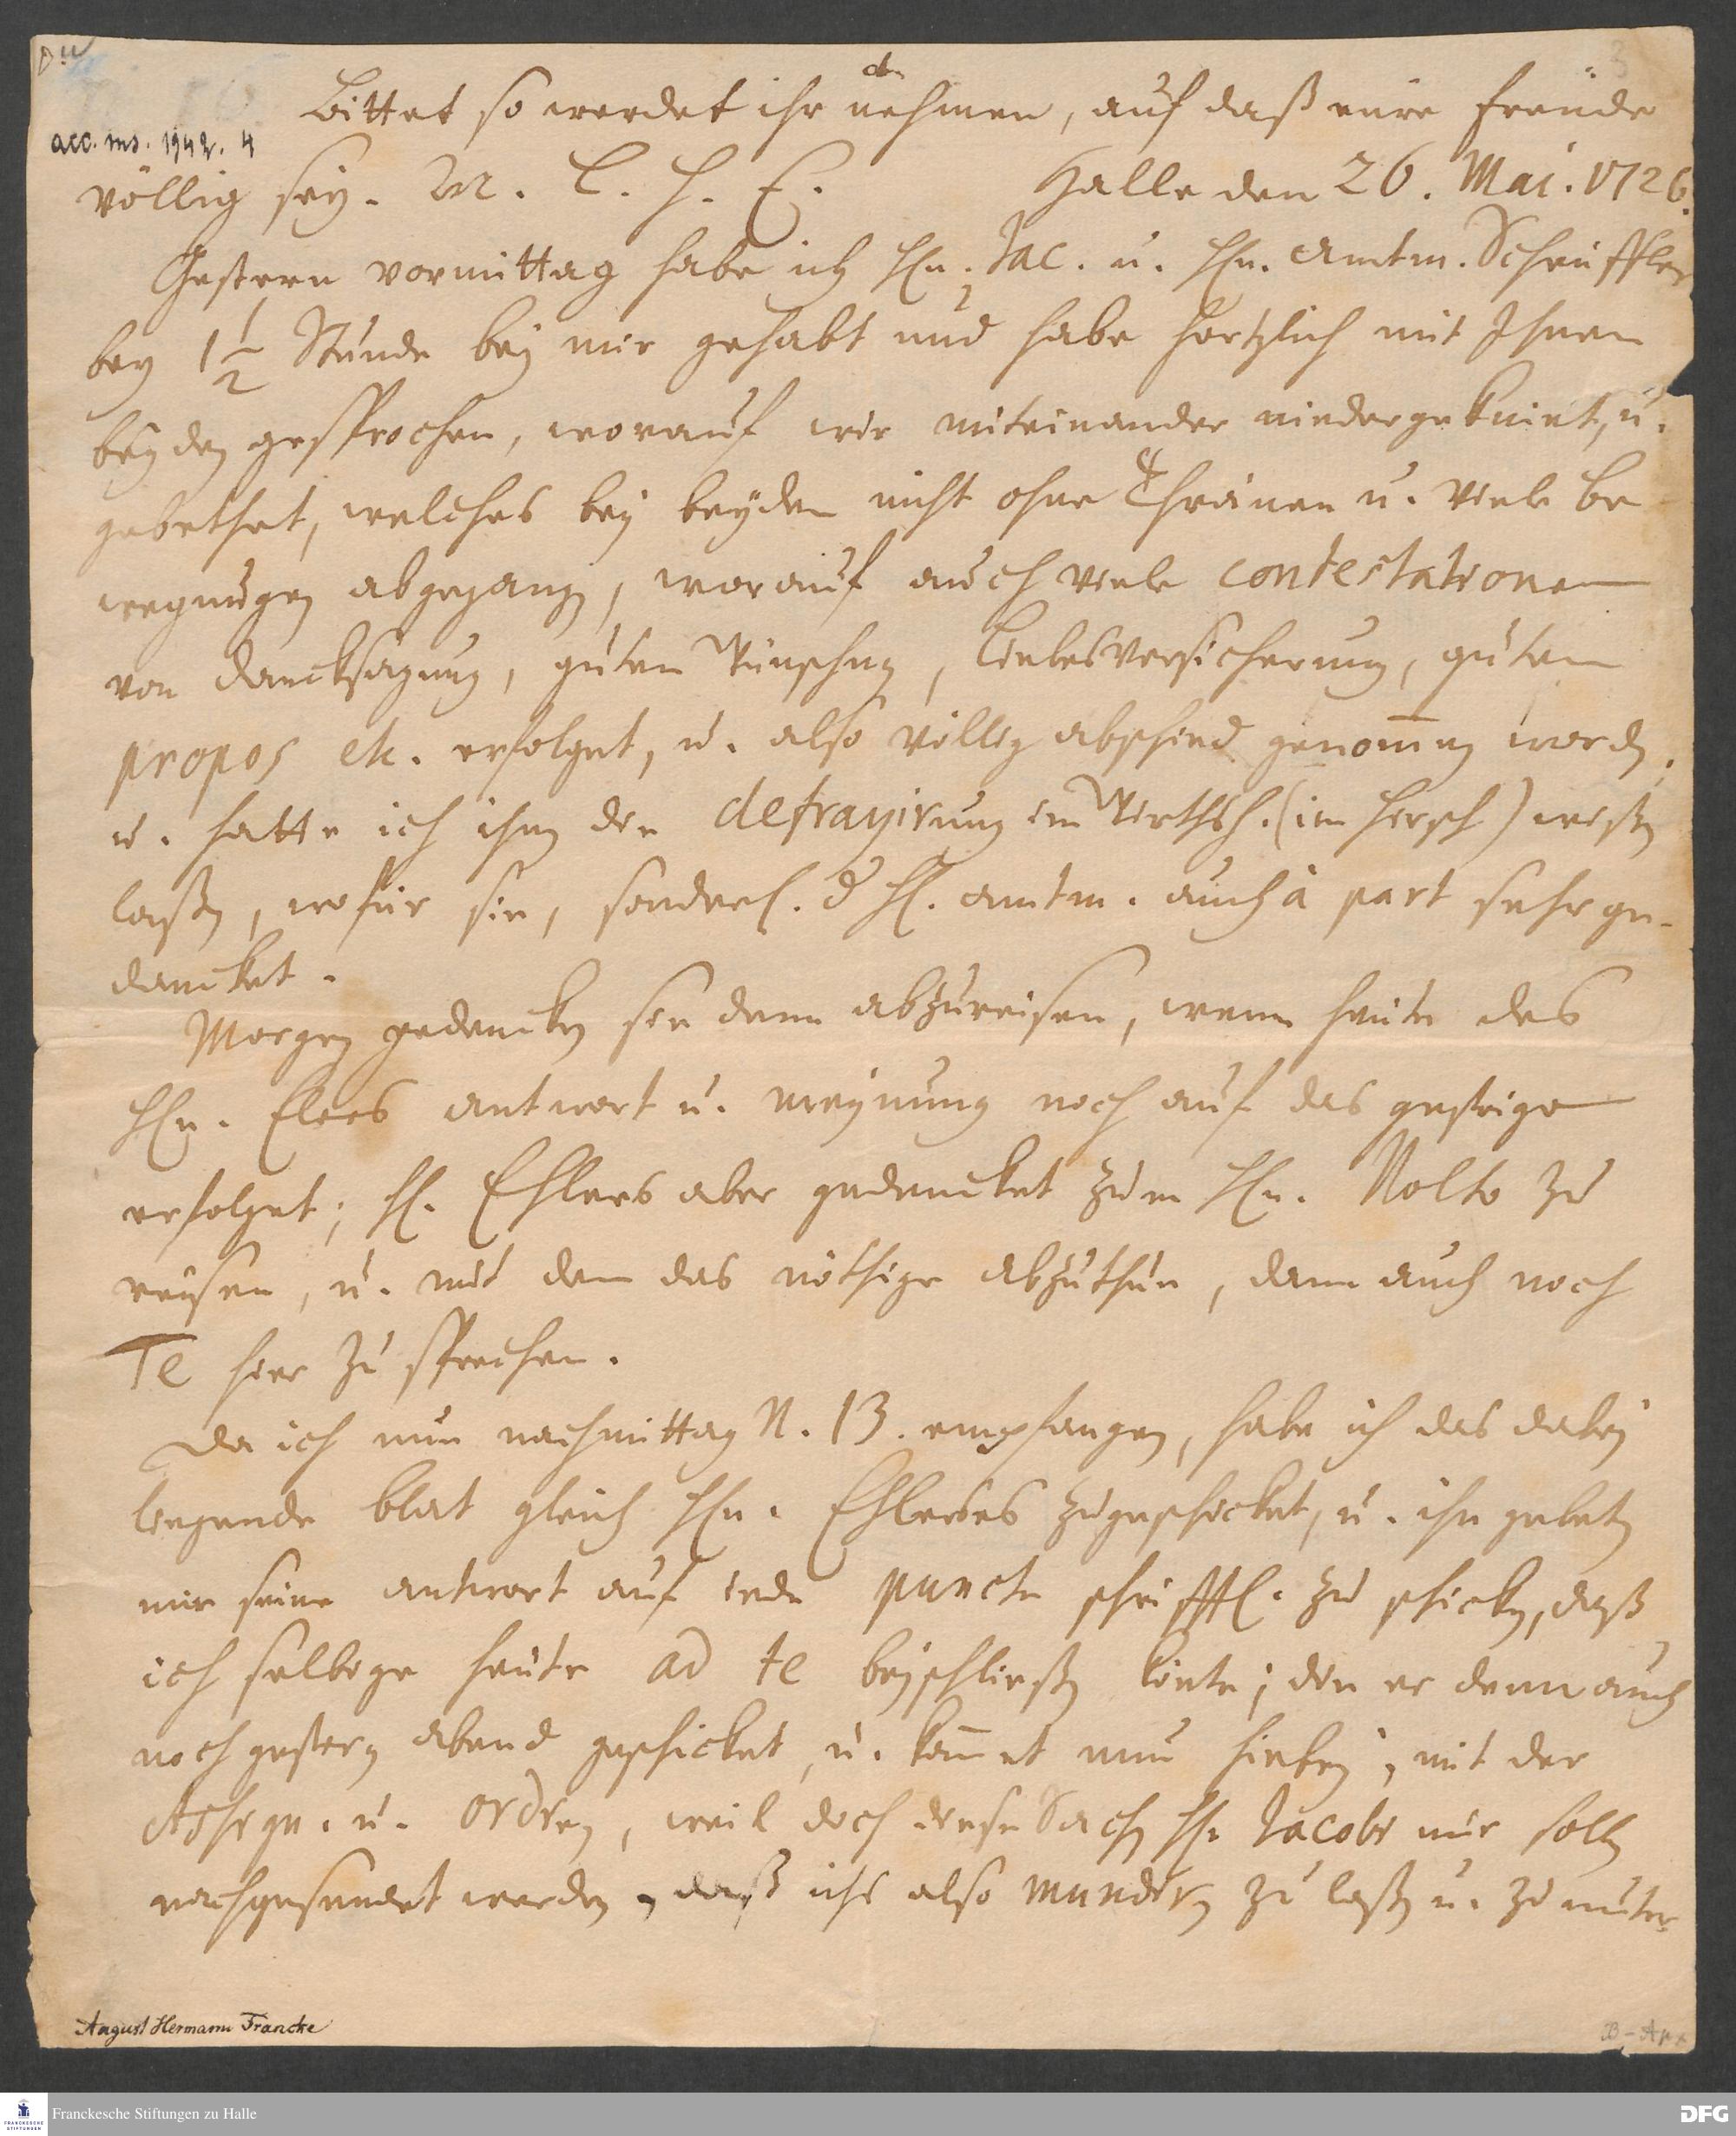 Bittet so werdet ihr nehmen, auf daß eure Freude
acc. ms. 1942. 4
völlig sey. M. L. H. E. Halle den 26. Maj. 1726.
Gestern vormittag habe ich Hn. Jac. u. Hn. Amtm. Scheuffler
bey 1 1/2 Stunde bey mir gehabt und habe hertzlich mit Ihnen
beyden gesprochen, worauf wir miteinander niedergekniet, u.
gebethet, welches bey beyden nicht ohne Thränen u. viele be
wegungen abgegangen, worauf auch viele contestationen
von dancksagung, guten Wünschen, liebesversicherung, guten
propos etc. erfolget, u. also völlig abschied genommen worden,
u. hatte ich ihnen die defrayirung im Wirthsh. (im Hirsch) wißen
laßen, wofür sie, sonderl. d H. Amtm. auch à part sehr ge-
dancket.
Morgen gedencken sie denn abzureisen, wenn heute des
Hn. Elers antwort u. meynung noch auf das gestrige
erfolget; H. Ehlers aber gedencket zum Hn. Nolte zu
reisen, u. mit dem das nöthige abzuthun, dann auch noch
Te hier zu sprechen.
Da ich nun nachmittag N. 13. empfangen, habe ich das dabey
liegende blat gleich Hn. Ehlers zugeschicket, u. ihn gebeten
mir seine antwort auf iede puncte schrifftl. zu schicken, daß
ich selbige heute ad te beyschließen könte; die er denn auch
noch gestern abend geschicket, u. kommet nun hiebey, mit der
u. ordren, weil doch diese Sachen H. Jacobi nur sollen
nachgesendet werden, daß ichs also mundiren zu laßen u. zu unter
August Hermann Francke
Franckesche Stiftungen zu Halle
DFG